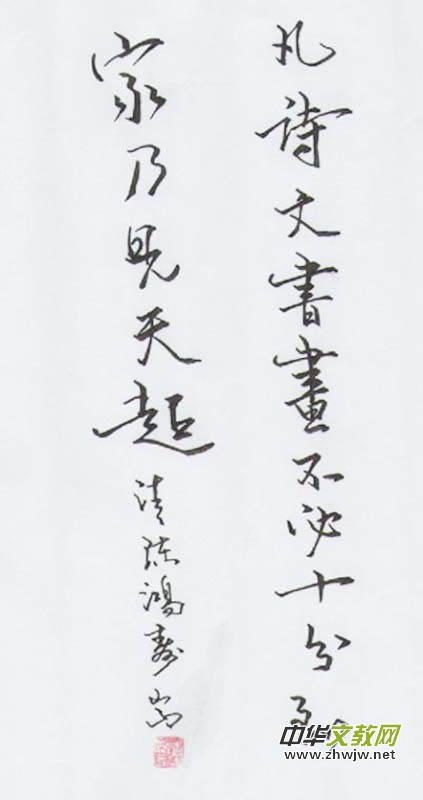 凡詩文書畫不必十分到
家乃見天趣 清陳鴻壽
中华文教网
www.zhwjw.net